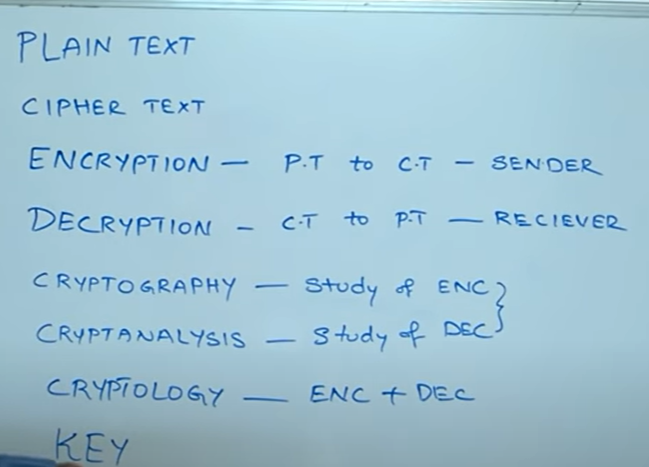 PLAIN TEXT
CIPHER TEXT
ENCRYPTION — P.T to C.T — SENDER
DECRYPTION — C.T to P.T — RECIEVER
CRYPTOGRAPHY — Study of ENC }
CRYPTANALYSIS — Study of DEC
CRYPTOLOGY — ENC + DEC
KEY